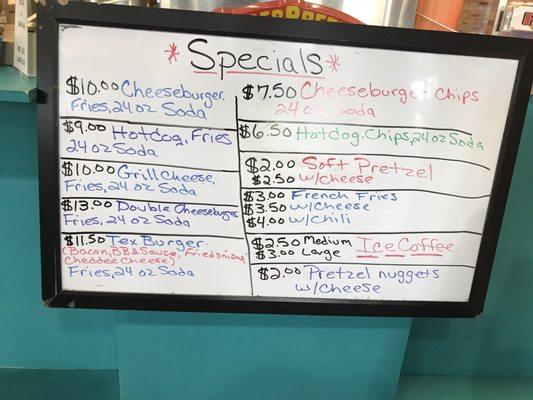 * Specials *
$10.00 Cheeseburger,
Fries, 24 oz Soda
$9.00 Hotdog, Fries
24 oz Soda
$10.00 Grill Cheese,
Fries, 24 oz Soda
$13.00 Double Cheeseburger
Fries, 24 oz Soda
$11.50 Tex Burger
(Bacon, BBQ Sauce, Fried onions
Cheddee Cheese)
Fries, 24 oz Soda
$7.50 Cheeseburger Chips
24 oz Soda
$6.50 Hotdog, Chips, 24 oz Soda
$2.00 Soft Pretzel
$2.50 w/Cheese
$3.00 French Fries
$3.50 w/Cheese
$4.00 w/Chili
$2.50 Medium Ice Coffee
$3.00 Large
$2.00 Pretzel nuggets
w/Cheese